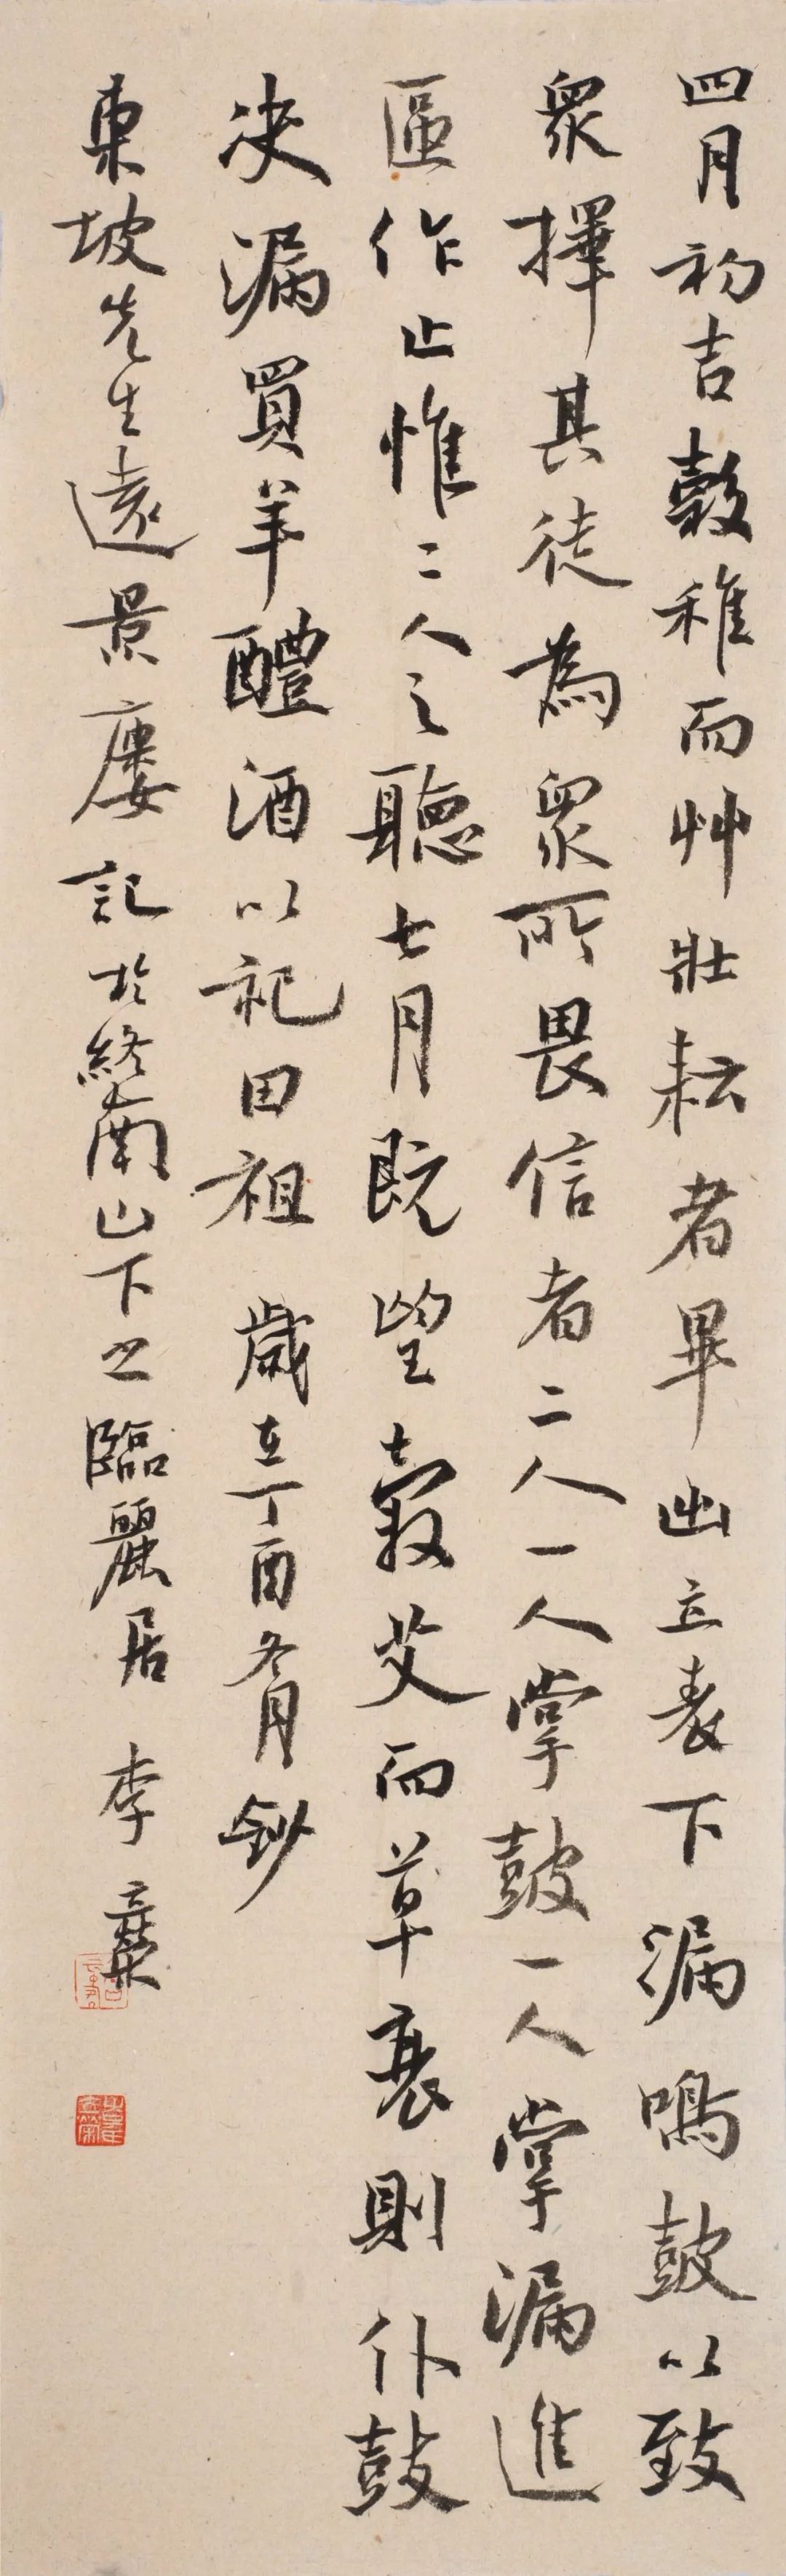 四月初吉榖稚而艸壯耘者畢出立表下漏鳴鼓以致
衆擇其徒為衆所畏信者二人一人掌鼓一人掌漏進
區作止惟二人之聽七月既望榖艾而草衰則仆鼓
决漏買羊醴酒以祀田祖 歲在丁酉冬月鈔
東坡先生遠景廔記於終南山下之臨麗居 李